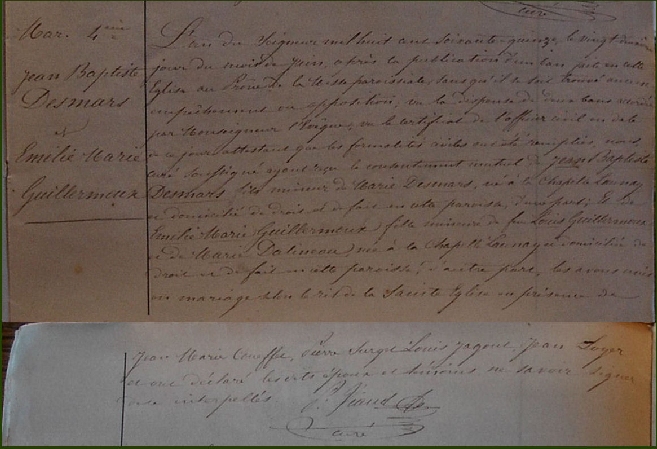 curé
Mar. 4ème
Jean Baptiste
Desmars
et
Emilie Marie
Guillermeux
L'an du Seigneur mil huit cent soixante-quinze, le vingt deux
jour du mois de Juin, après la publication d'un ban faite en cette
Eglise au Prône de la Messe paroissiale, sans qu'il se soit trouvé aucun
empêchement ou opposition, vu la dispense de deux bans accordée
par Monseigneur l'Evêque, vu le certificat de l'officier civil en date
de ce jour attestant que les formalités civiles ont été remplies, nous
curé soussigné ayant reçu le consentement mutuel de Jean Baptiste
Desmars fils mineur de Marie Desmars, né à la Chapelle Launay
et domicilié de droit et de fait en cette paroisse, d'une part; Et de
Emilie Marie Guillermeux, fille mineure de feu Louis Guillermeux
et de Marie née à la Chapelle Launay et domiciliée de
droit et de fait en cette paroisse, d'autre part, les avons unis
en mariage selon le rit de la Sainte Eglise en présence de
Jean Marie Pierre Louis Jean
qui ont déclaré les dits époux et témoins ne savoir signer
de ce interpellés
curé